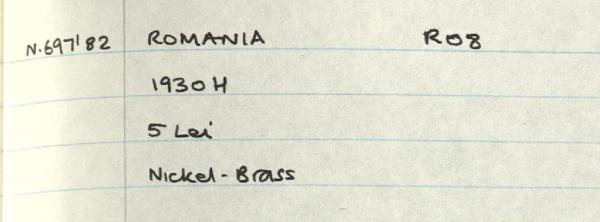 N.697'82 ROMANIA R08
1930 H
5 Lei
Nickel-Brass